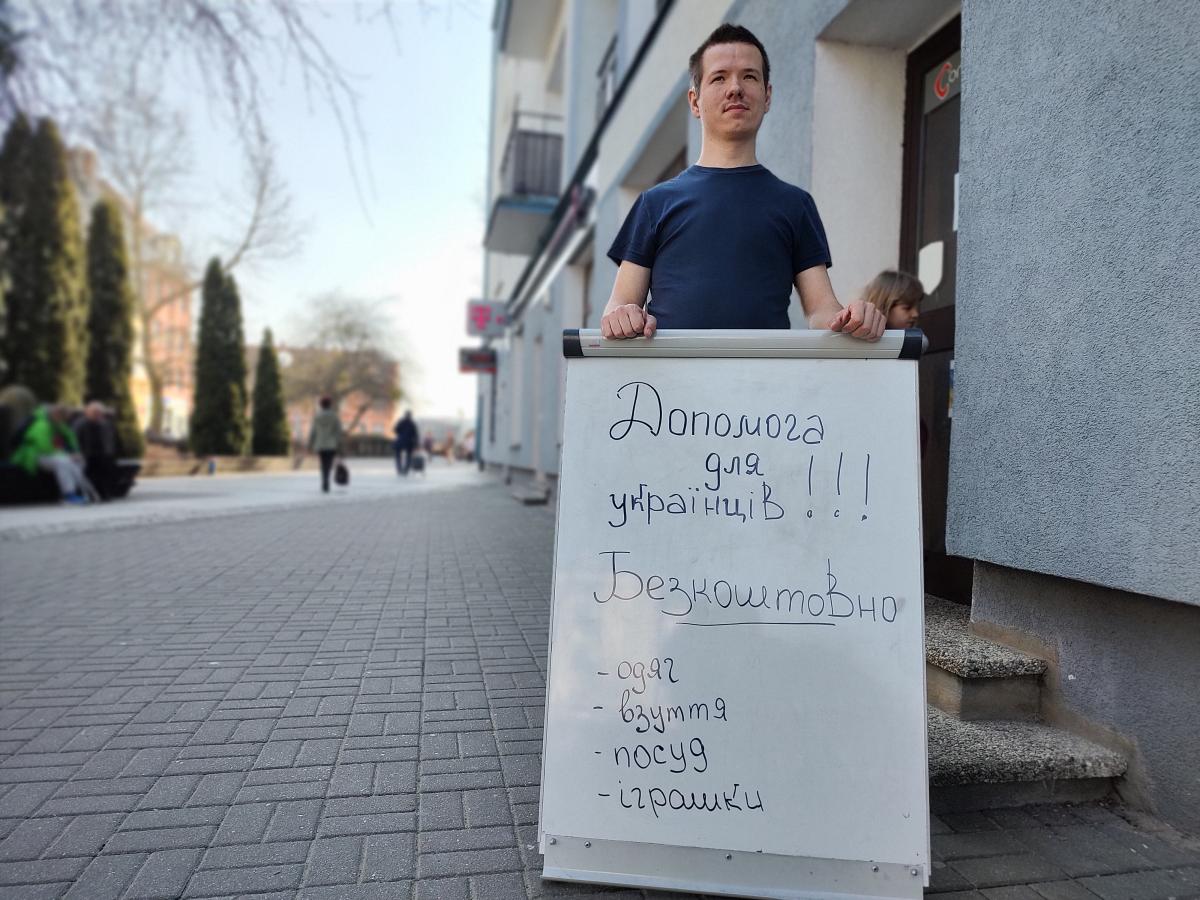 Допомога
для
українців !!!
Безкоштовно
- одяг
- взуття
- посуд
- іграшки